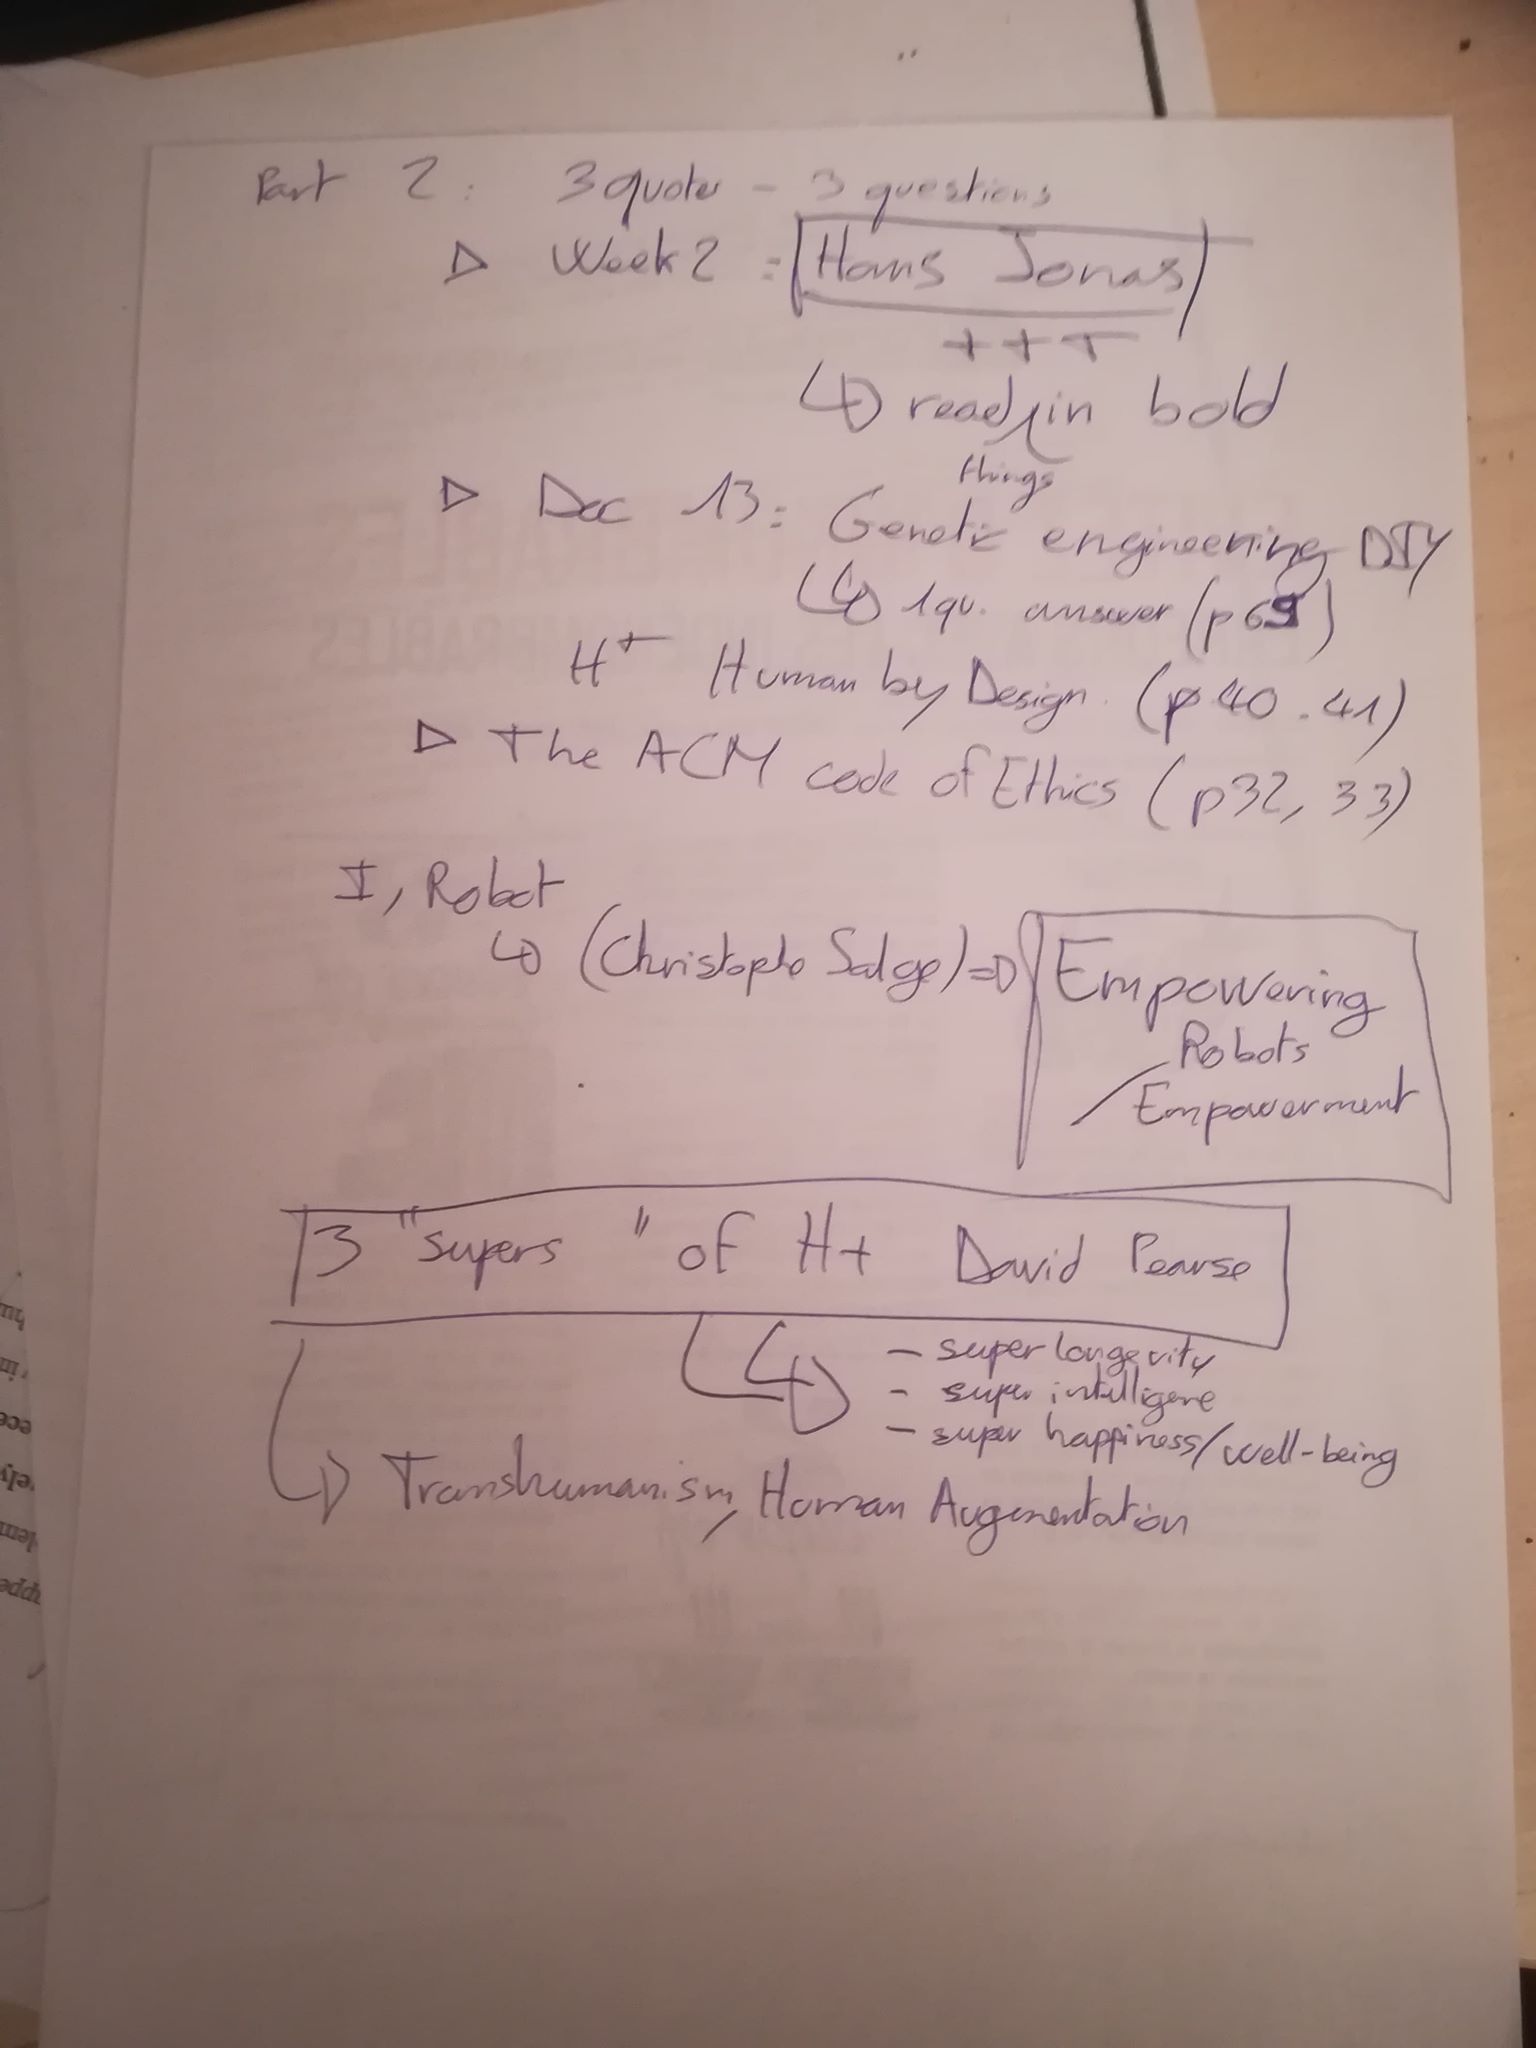 Part 2: 3 quotes - 3 questions
▷ Week 2 = Hans Jonas
+++
↳ read in bold
things
▷ Doc 13: Genetic engineering DIY
↳ 1 qu. answer (p 69)
H+ Human by Design. (p 40.41)
▷ The ACM code of Ethics (p32, 33)
I, Robot
↳ (Christophe Salge) => Empowering
Robots
/ Empowerment
3 "supers" of H+ David Pearse
- super longevity
- super intelligene
- super happiness/well-being
Transhumanism, Human Augmentation